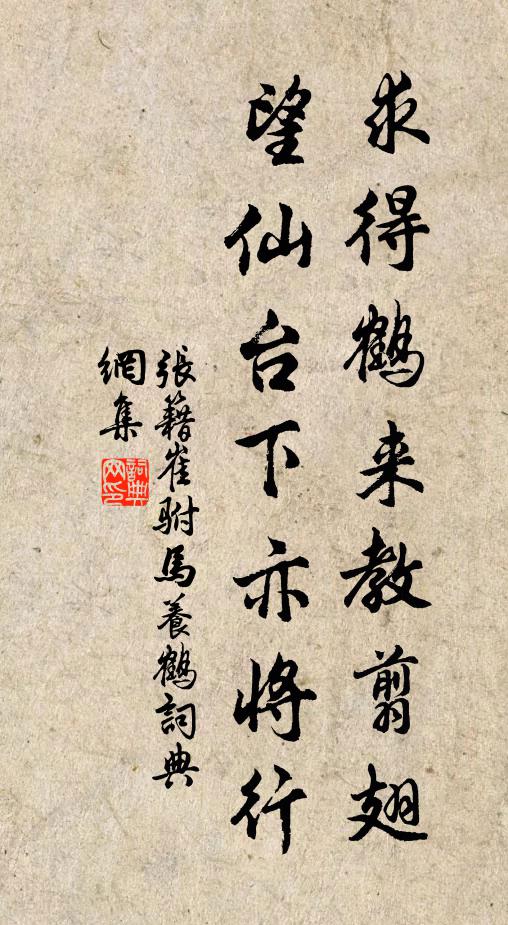 求得鹤来教翦翅
望仙台下亦将行
張籍崔駙馬養鶴詞典
網集
詞典
网印